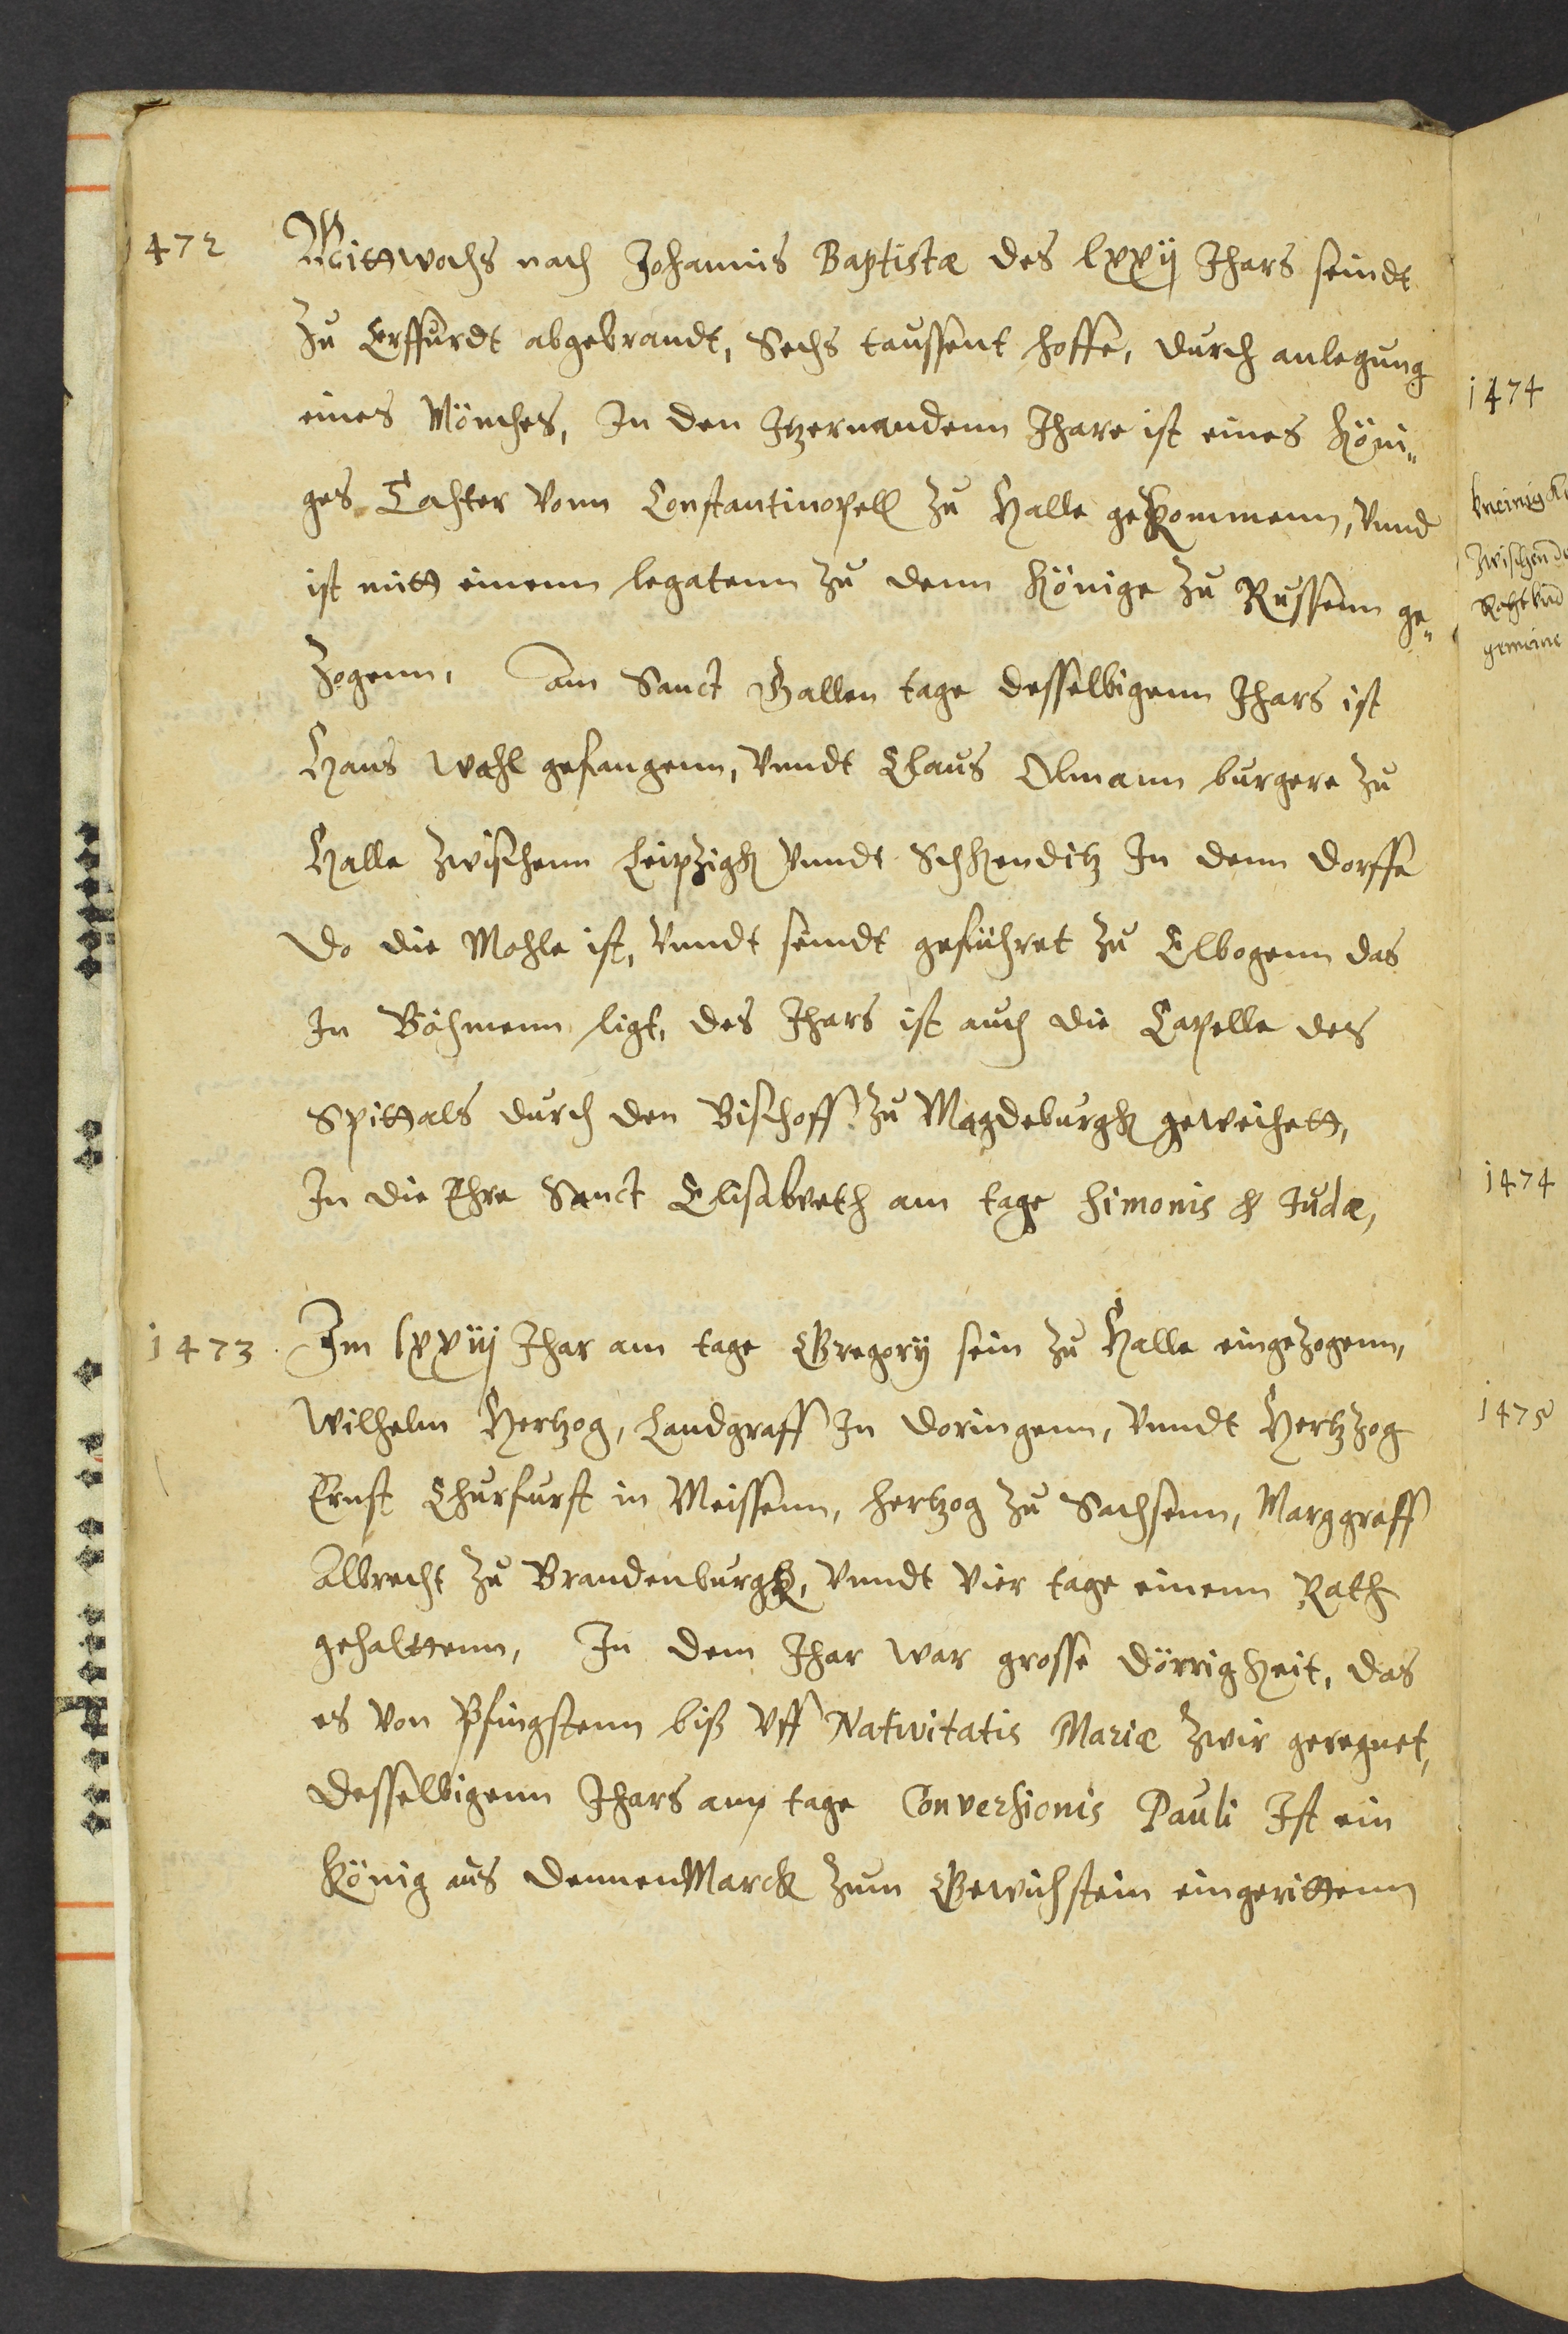 1472
Mittwochs nach Johannis Baptistæ des lxxij Jhars seindt
Zu Erffurdt abgebrandt, Sechs taussent hoffe, durch anlegung
eines Mönches, In den Itzernandenn Jhare ist eines Köni„
ges Tochter vonn Constantinopell zu Halle gekommenn, vnnd
ist mitt einenn legatenn zu denn Könige zu Russenn ge„
Zogenn, am Sanct Gallen tage desselbigenn Jhars ist
Hans Wahl gefangenn, vnndt Claus Olmann burgere zu
Halle zwischenn Leipzigk vnndt Schkenditz In denn dorffe
do die Mohle ist, vnndt seindt geführet zu Elbogenn das
In Böhmenn ligt, des Jhars ist auch die Capelle des
Spittals durch den Bischoff zu Magdeburgk geweihett,
In die Ehre Sanct Elisabeth am tage Simonis & Judæ,
1473. Im lxxiij Jhar am tage Gregorij sein zu Halle eingezogenn,
Wilhelm Hertzog, Landgraff In doringenn, vnndt Hertzog
Ernst Churfurst in Meissenn, hertzog zu Sachsenn, Marggraff
Albrecht zu Brandenburgk, vnndt vier tage einenn Rath
gehalttenn, In dem Jhar war grosse dörrigkeit, das
es von Pfingstenn biß vff Nativitatis Mariæ zwir geregnet,
desselbigenn Jhars am tage Conversionis Pauli Ist ein
König aus dennenMarck zum Gewichstein eingerittenn
1474
Zwischen de
gemeine
1474
1475